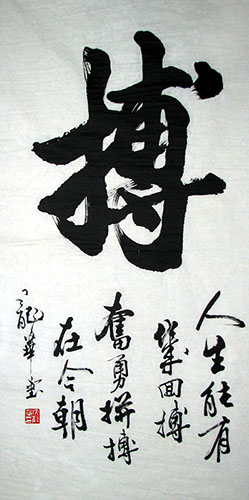 搏
人生能有
几回搏
奋勇拼搏
在今朝
龍華堂